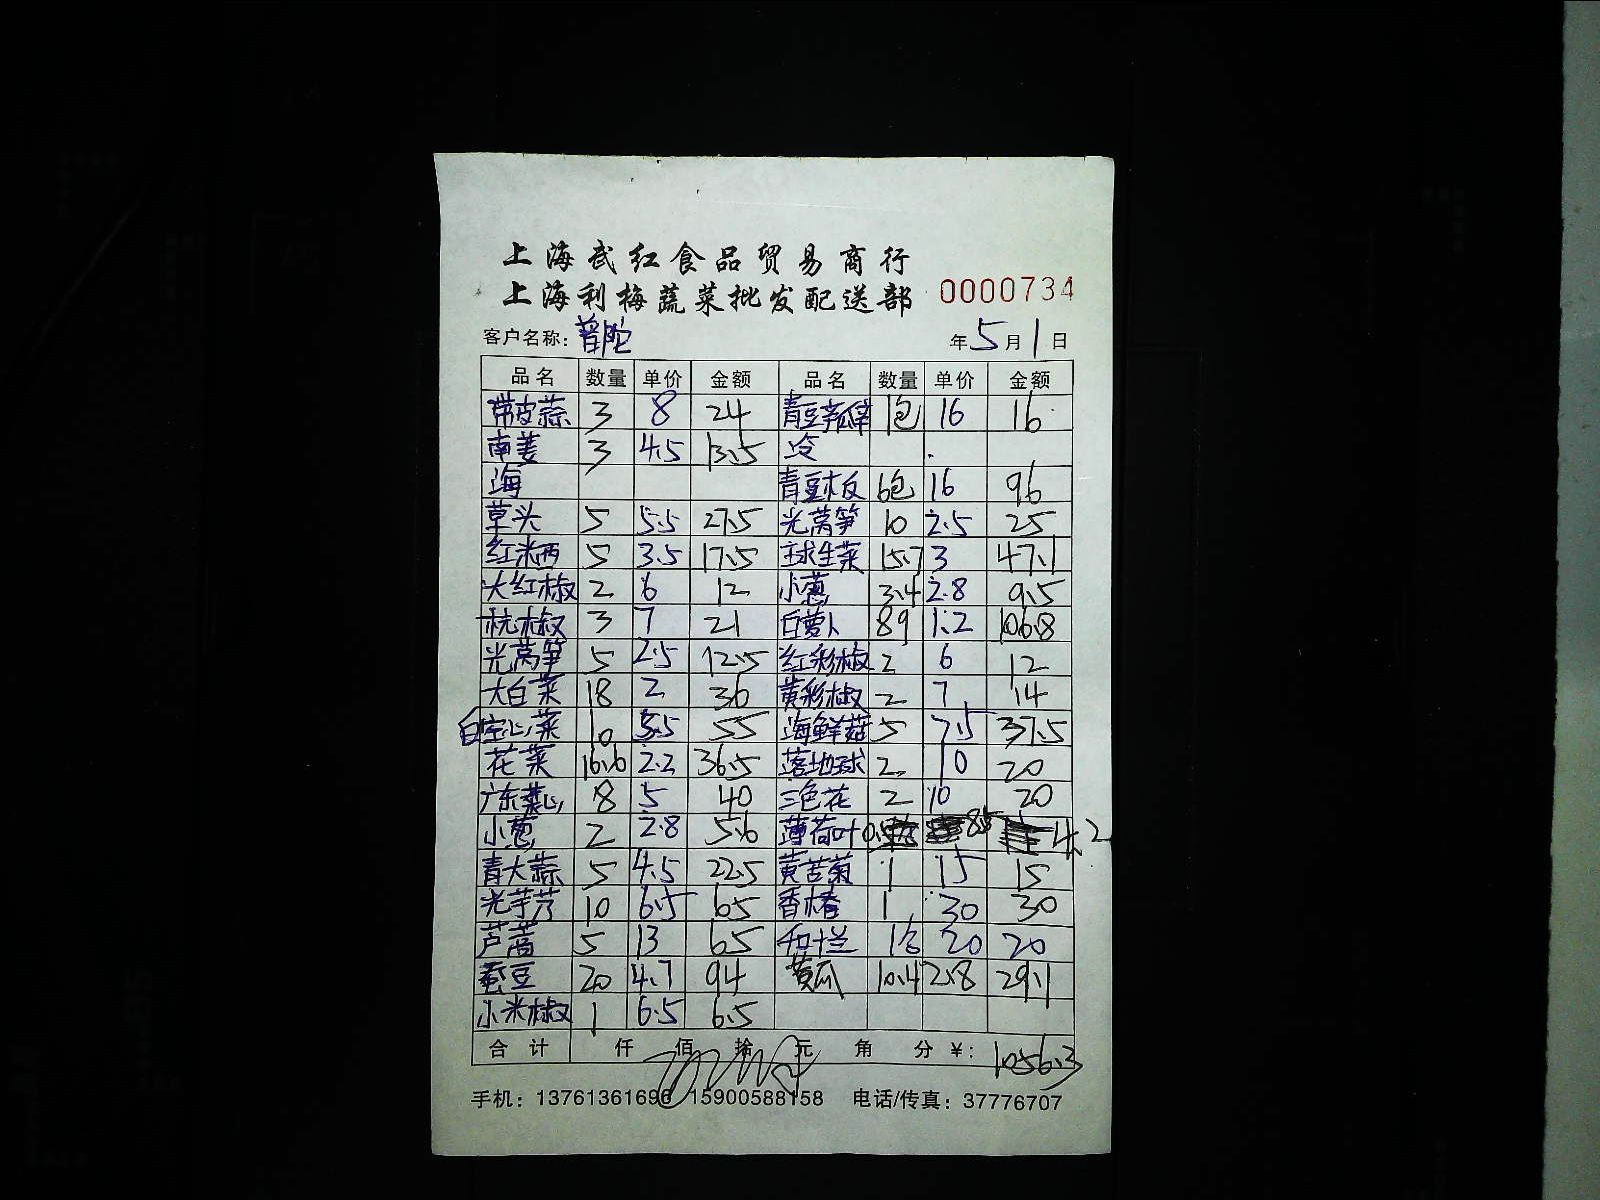 上海武红食品贸易商行
上海利梅蔬菜批发配送部 0000734
客户名称：普陀 年5月1日
品名 数量 单价 金额 品名 数量 单价 金额
带皮蒜 3 8 24 青豆 1包 16 16
南姜 3 4.5 13.5 冷
海 青豆板 6包 16 96
草头 5 5.5 27.5 光莴笋 10 2.5 25
红米西 5 3.5 17.5 球生菜 15.7 3 47.1
大红椒 2 6 12 小葱 3.4 2.8 9.5
杭椒 3 7 21 白萝卜 89 1.2 106.8
光莴笋 5 2.5 12.5 红彩椒 2 6 12
大白菜 18 2 36 黄彩椒 2 7 14
白空心菜 10 5.5 55 海鲜菇 5 7.5 37.5
花菜 16.6 2.2 36.5 落地球 2 10 20
广东菜心 8 5 40 三色花 2 10 20
小葱 2 2.8 5.6 薄荷叶 85 4.2
青大蒜 5 4.5 22.5 黄苦菊 1 15 15
光芋艿 10 6.5 65 香椿 1 30 30
芦蒿 5 13 65 20 20
蚕豆 20 4.7 94 黄瓜 10.4 2.8 29.1
小米椒 1 6.5 6.5
合计 仟 佰 拾 元 角 分 ¥： 1056.3
手机：13761361696 15900588158 电话/传真：37776707